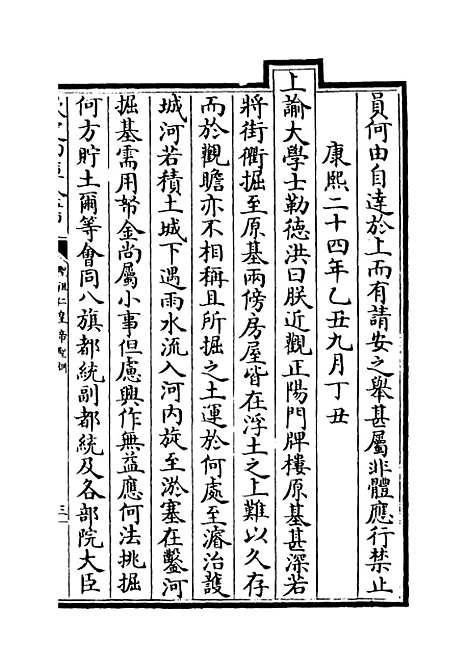 員何由自達於上而有請安之舉甚屬非體應行禁止
康熙二十四年乙丑九月丁丑
上諭大學士勒德洪曰朕近觀正陽門牌樓原基甚深若
將街衢掘至原基兩傍房屋皆在浮土之上難以久存
而於觀瞻亦不相稱且所掘之土運於何處至濬治護
城河若積土城下遇雨水流入河内旋至淤塞在鑿河
掘基需用帑金尚屬小事但慮興作無益應何法挑掘
何方貯土爾等會同八旗都統副都統及各部院大臣
聖祖仁皇帝聖訓